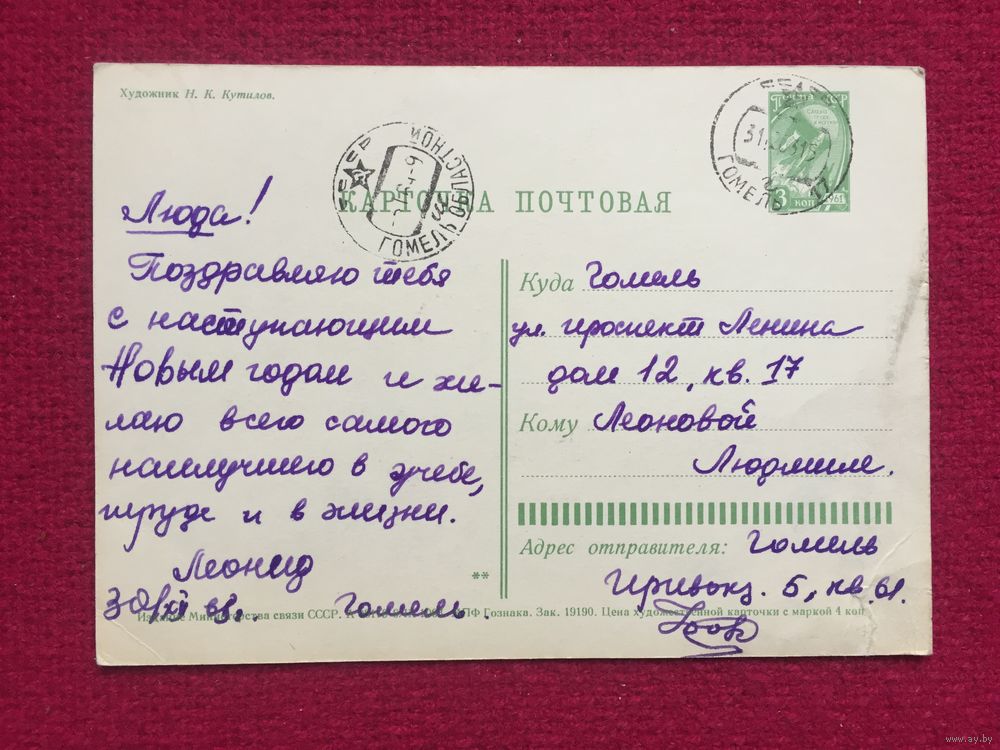 Художник Н. К. Кутилов.
ПОЧТА СССР
3 КОП
1961
ГОМЕЛЬ 17
ГОМЕЛЬ ОБЛАСТНОЙ
КАРТОЧКА ПОЧТОВАЯ
Люда!
Поздравляю тебя
с наступающим
Новым годом и же-
лаю всего самого
наилучшего в учебе,
труде и в жизни.
Леонид
Гомель.
Куда Гомель
ул. проспект Ленина
дом 12, кв. 17
Кому Леоновой
Людмиле.
Адрес отправителя: Гомель
Привокз. 5, кв. 61.
**
Издание Министерства связи СССР. МПФ Гознака. Зак. 19190. Цена художественной карточки с маркой 4 коп
www.ay.by